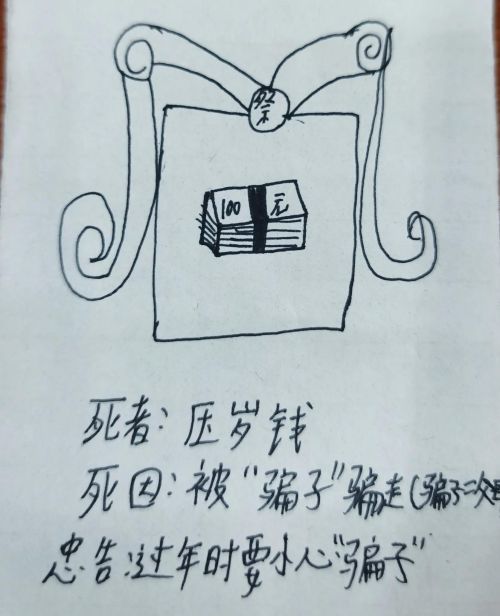 祭
100 元
死者：压岁钱
死因：被“骗子”骗走（骗子二次
忠告：过年时要小心“骗子”